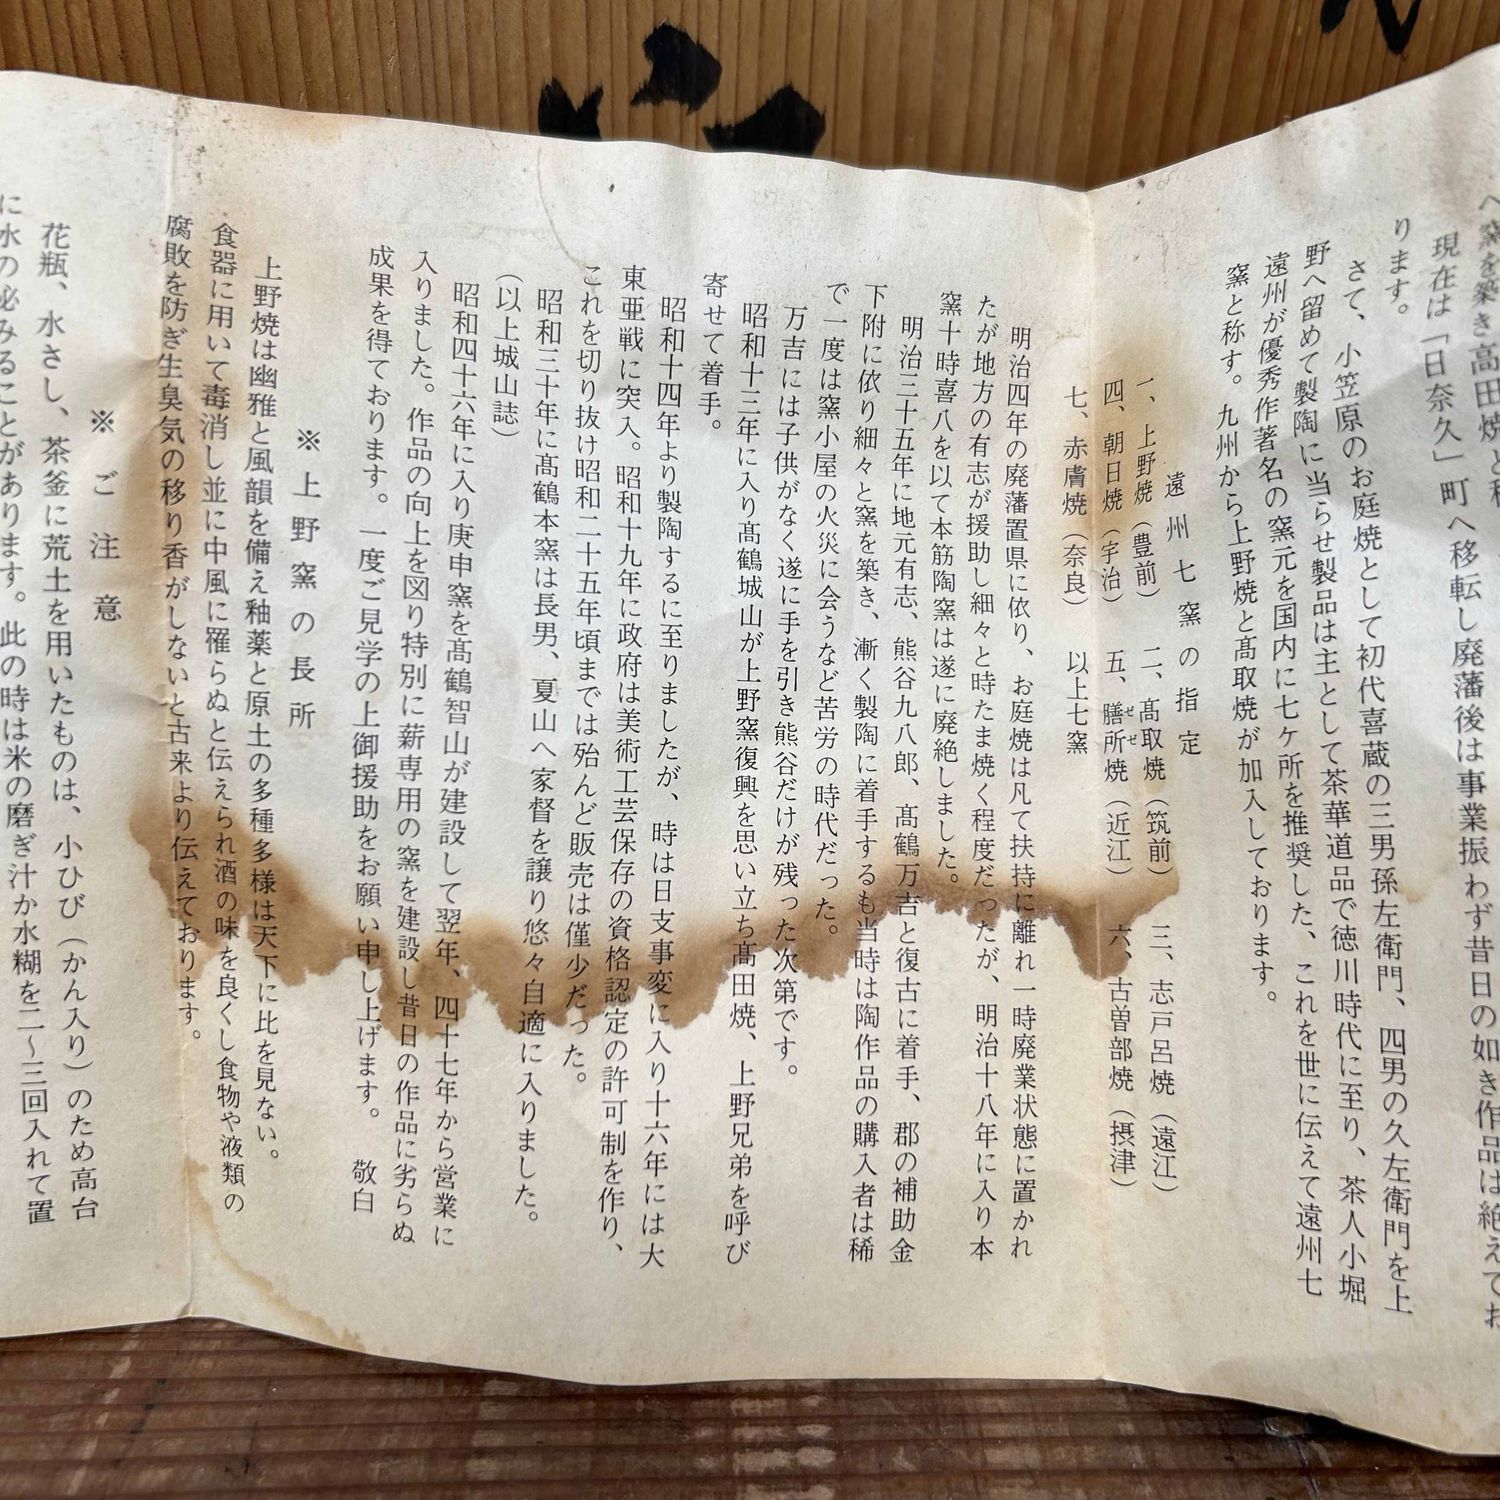 へ窯を築き高田焼と
現在は「日奈久」町へ移転し廃藩後は事業振わず昔日の如き作品は絶えてお
ります。
さて、小笠原のお庭焼として初代喜蔵の三男孫左衛門、四男の久左衛門を上
野へ留めて製陶に当らせ製品は主として茶華道品で徳川時代に至り、茶人小堀
遠州が優秀作著名の窯元を国内に七ケ所を推奨した、これを世に伝えて遠州七
窯と称す。九州から上野焼と髙取焼が加入しております。
遠州七窯の指定
一、上野焼（豊前） 二、髙取焼（筑前） 三、志戸呂焼（遠江）
四、朝日焼（宇治） 五、膳所焼（近江） 六、古曽部焼（摂津）
七、赤膚焼（奈良） 以上七窯
明治四年の廃藩置県に依り、お庭焼は凡て扶持に離れ一時廃業状態に置かれ
たが地方の有志が援助し細々と時たま焼く程度だったが、明治十八年に入り本
窯十時喜八を以て本筋陶窯は遂に廃絶しました。
明治三十五年に地元有志、熊谷九八郎、髙鶴万吉と復古に着手、郡の補助金
下附に依り細々と窯を築き、漸く製陶に着手するも当時は陶作品の購入者は稀
で一度は窯小屋の火災に会うなど苦労の時代だった。
万吉には子供がなく遂に手を引き熊谷だけが残った次第です。
昭和十三年に入り髙鶴城山が上野窯復興を思い立ち髙田焼、上野兄弟を呼び
寄せて着手。
昭和十四年より製陶するに至りましたが、時は日支事変に入り十六年には大
東亜戦に突入。昭和十九年に政府は美術工芸保存の資格認定の許可制を作り、
これを切り抜け昭和二十五年頃までは殆んど販売は僅少だった。
昭和三十年に髙鶴本窯は長男、夏山へ家督を譲り悠々自適に入りました。
（以上城山誌）
昭和四十六年に入り庚申窯を髙鶴智山が建設して翌年、四十七年から営業に
入りました。作品の向上を図り特別に薪専用の窯を建設し昔日の作品に劣らぬ
成果を得ております。一度ご見学の上御援助をお願い申し上げます。 敬白
※上野窯の長所
上野焼は幽雅と風韻を備え釉薬と原土の多種多様は天下に比を見ない。
食器に用いて毒消し並に中風に罹らぬと伝えられ酒の味を良くし食物や液類の
腐敗を防ぎ生臭気の移り香がしないと古来より伝えております。
※ご注意
花瓶、水さし、茶釜に荒土を用いたものは、小ひび（かん入り）のため高台
に水の泌みることがあります。此の時は米の磨ぎ汁か水糊を二～三回入れて置